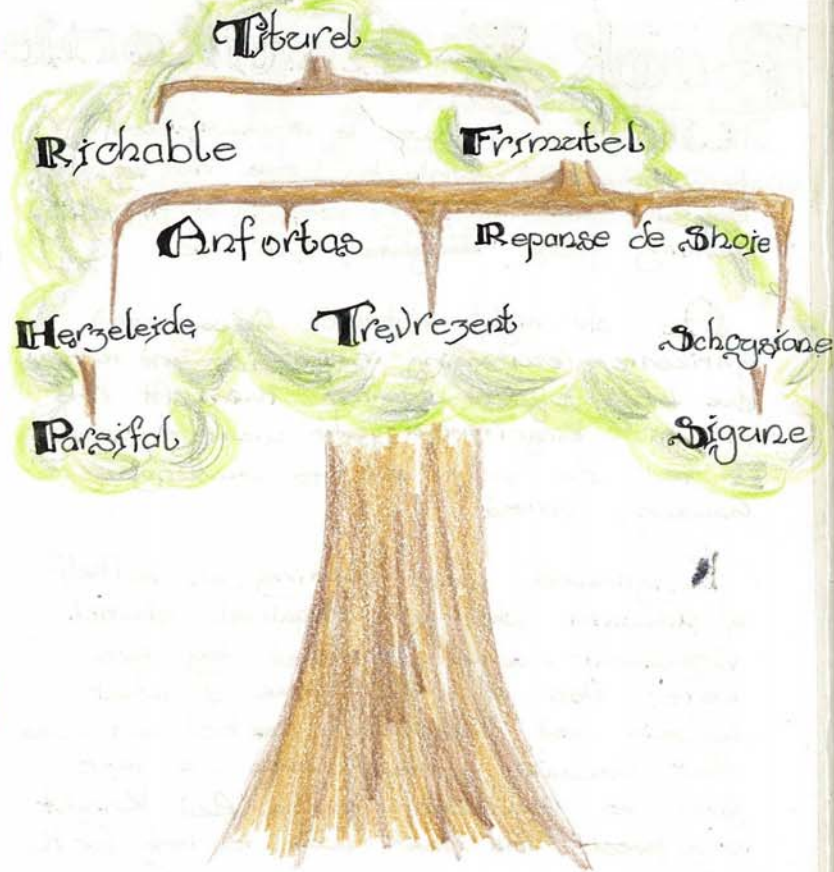 Titurel
Richable Frimutel
Anfortas Repanse de Shoje
Herzeleide Trevrezent Schoysiane
Parsifal Sigune